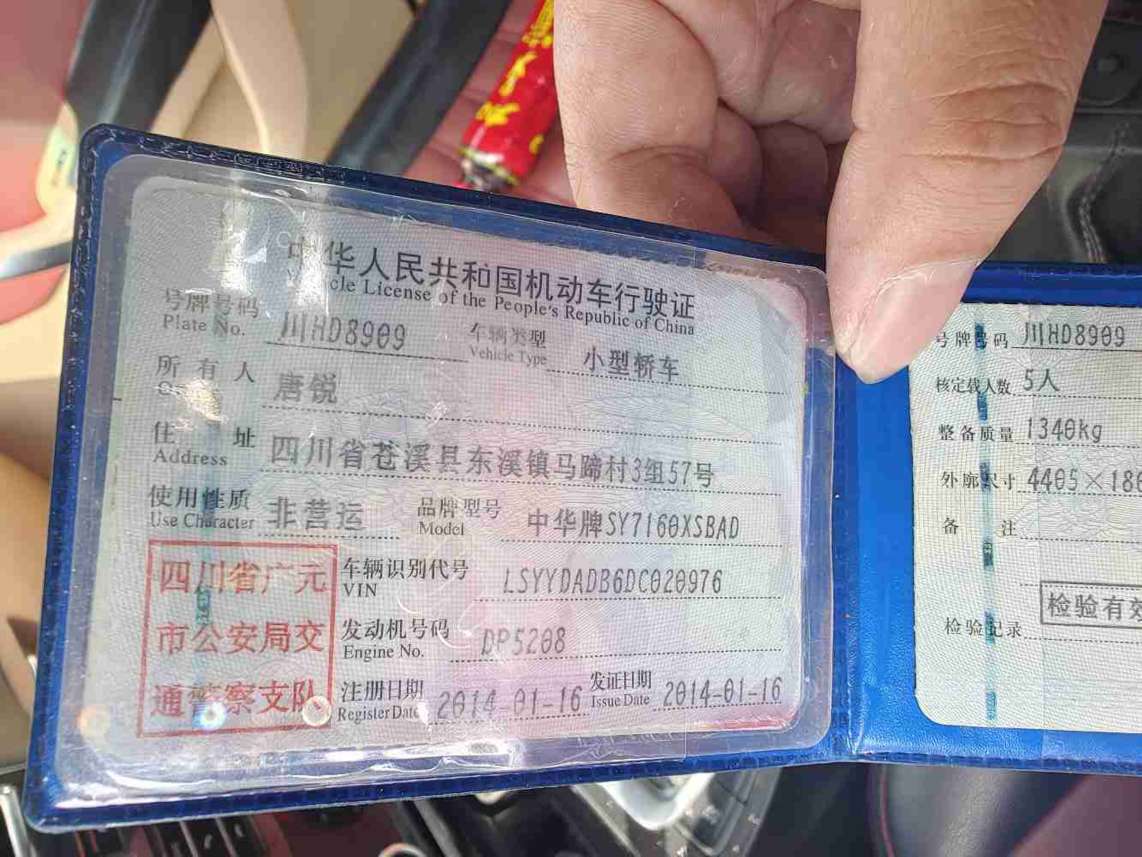 中华人民共和国机动车行驶证
Vehicle License of the People's Republic of China
号牌号码 川HD8909 车辆类型 小型轿车
Plate No. Vehicle Type
所有人 唐锐
住址 四川省苍溪县东溪镇马蹄村3组57号
Address
使用性质 非营运 品牌型号 中华牌SY7160XSBAD
Use Character Model
四川省广元
市公安局交
通警察支队
车辆识别代号 LSYYDADB6DC020976
VIN
发动机号码 DP5208
Engine No.
注册日期 2014-01-16 发证日期 2014-01-16
Register Date Issue Date
号牌号码 川HD8909
核定载人数 5人
整备质量 1340kg
外廓尺寸 4405×180
备注
检验有效
检验记录